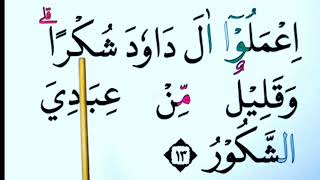 اِعْمَلُوْٓا اٰلَ دَاوٗدَ شُكْرًاۗ
وَقَلِيْلٌ مِّنْ عِبَادِيَ
الشَّكُوْرُ ١٣